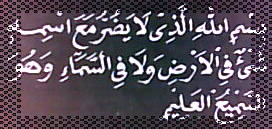 بِسْمِ اللهِ الَّذِیْ لَا یَضُرُّ مَعَ اسْمِهٖ
شَیْءٌ فِی الْاَرْضِ وَلَا فِی السَّمَآءِ وَهُوَ
السَّمِیْعُ الْعَلِیْمُ